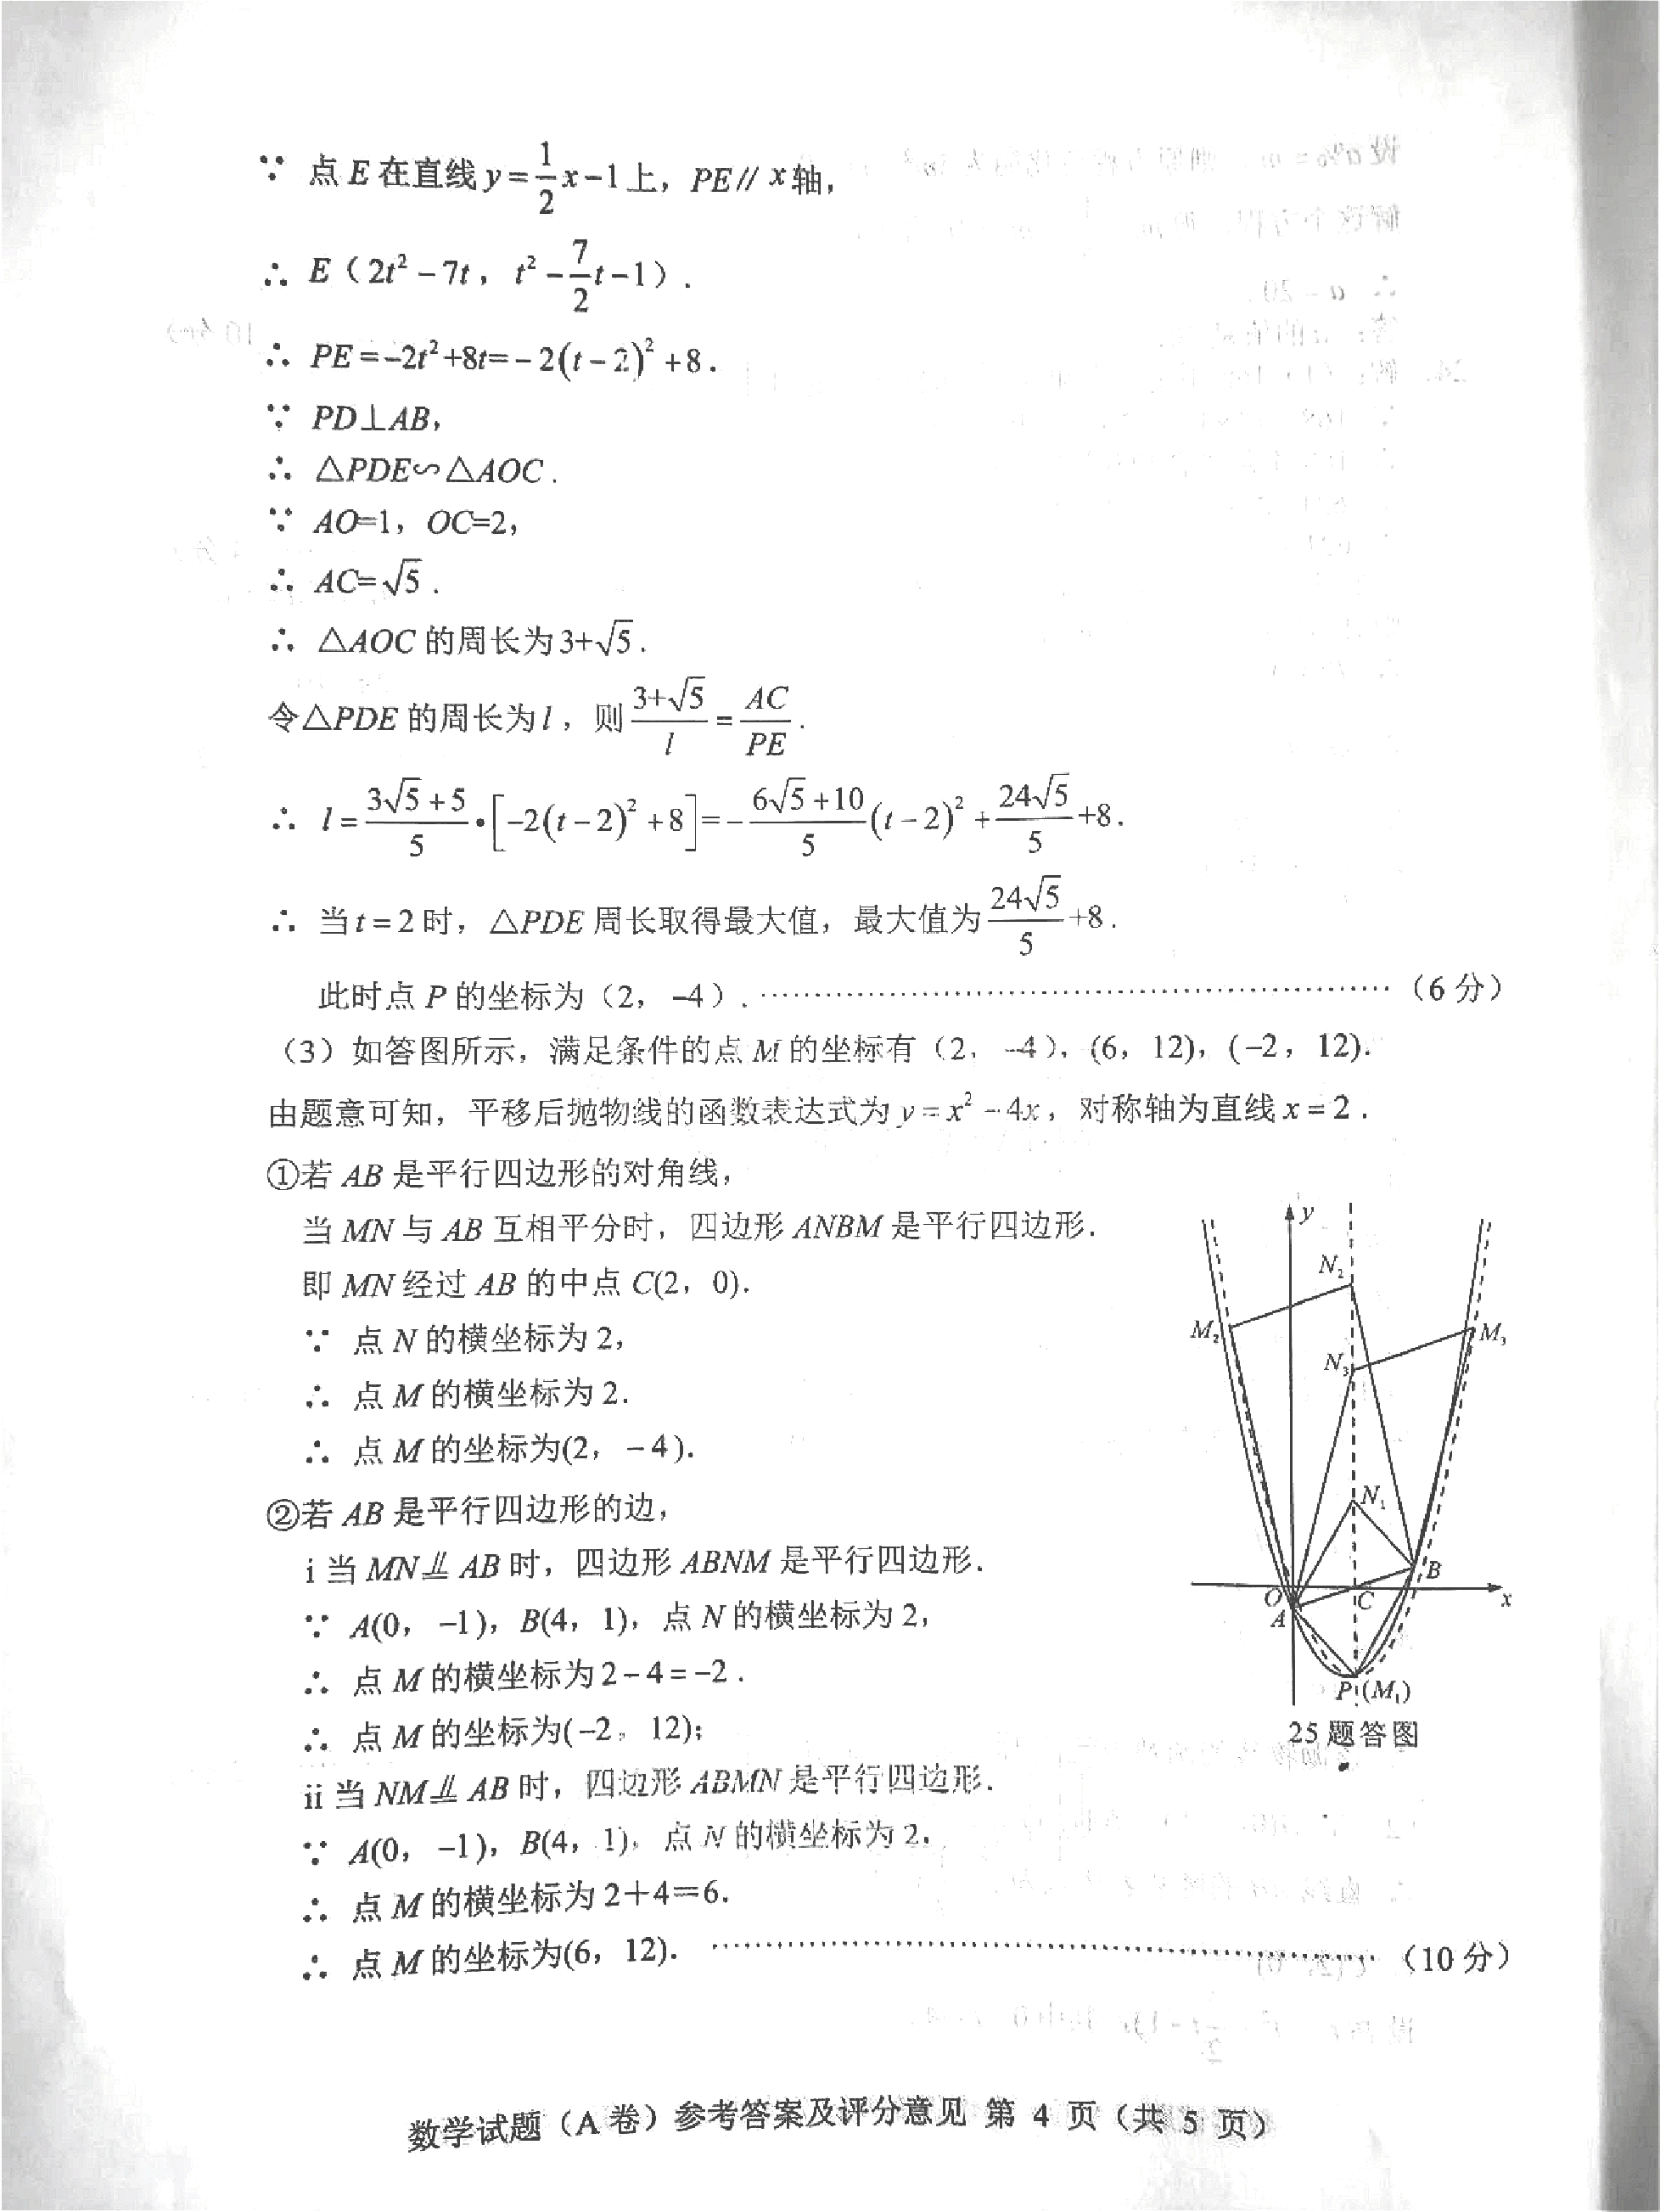 ∵ 点E在直线y=\frac{1}{2}x-1上，PE∥x轴，
∴ E（2t²-7t，t²-\frac{7}{2}t-1）.
∴ PE=-2t²+8t=-2(t-2)²+8.
∵ PD⊥AB，
∴ △PDE∽△AOC.
∵ AO=1，OC=2，
∴ AC=√5.
∴ △AOC的周长为3+√5.
令△PDE的周长为l，则\frac{3+√5}{l}=\frac{AC}{PE}.
∴ l=\frac{3√5+5}{5}•[-2(t-2)²+8]=-\frac{6√5+10}{5}(t-2)²+\frac{24√5}{5}+8.
∴ 当t=2时，△PDE周长取得最大值，最大值为\frac{24√5}{5}+8.
此时点P的坐标为（2，-4）.……………………（6分）
（3）如答图所示，满足条件的点M的坐标有（2，-4），(6，12)，(-2，12).
由题意可知，平移后抛物线的函数表达式为y=x²-4x，对称轴为直线x=2.
①若AB是平行四边形的对角线，
当MN与AB互相平分时，四边形ANBM是平行四边形.
即MN经过AB的中点C(2，0).
∵ 点N的横坐标为2，
∴ 点M的横坐标为2.
∴ 点M的坐标为(2，-4).
②若AB是平行四边形的边，
i当MN⊥∥AB时，四边形ABNM是平行四边形.
∵ A(0，-1)，B(4，1)，点N的横坐标为2，
∴ 点M的横坐标为2-4=-2.
∴ 点M的坐标为(-2，12)；
ii当NM⊥∥AB时，四边形ABMN是平行四边形.
∵ A(0，-1)，B(4，1)，点N的横坐标为2，
∴ 点M的横坐标为2+4=6.
∴ 点M的坐标为(6，12).……………………（10分）
y
N₂
M₂
M₃
N₃
N₁
B
O
C
x
A
P(M₁)
25题答图
数学试题（A卷）参考答案及评分意见 第 4 页（共 5 页）